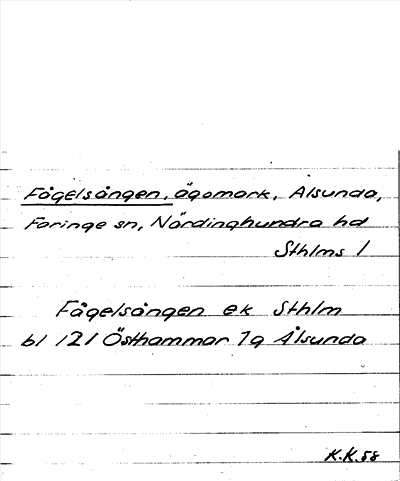 Fågelsången, ägomark, Alsunda,
Faringe sn, Närdinghundra hd
Sthlms l
Fågelsången ek Sthlm
bl 121 Östhammar 7g Ålsunda
K.K.58